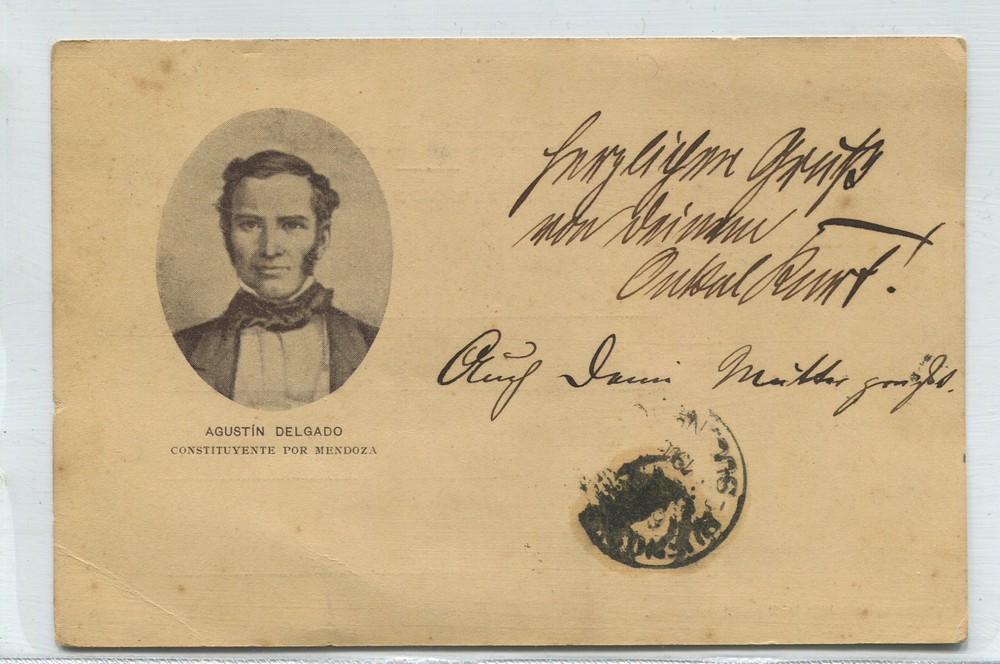 AGUSTÍN DELGADO
CONSTITUYENTE POR MENDOZA
Herzlichen Gruß
von Deinem
Onkel Kurt!
Auch Deine Mutter grüßt.